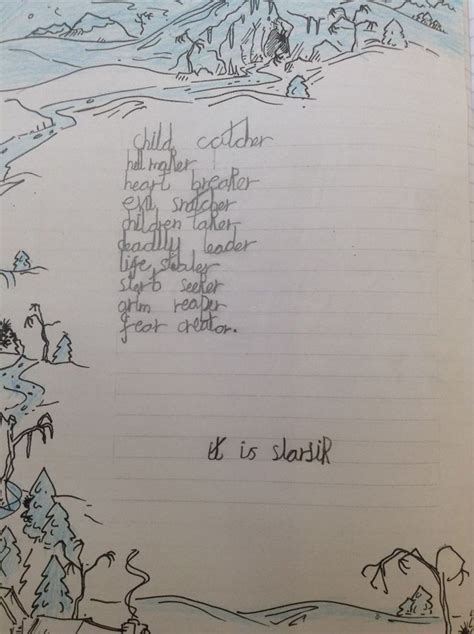 child catcher
hell maker
heart breaker
evil snatcher
children taker
deadly leader
life stealer
seeker
grim reaper
fear creator.
it is